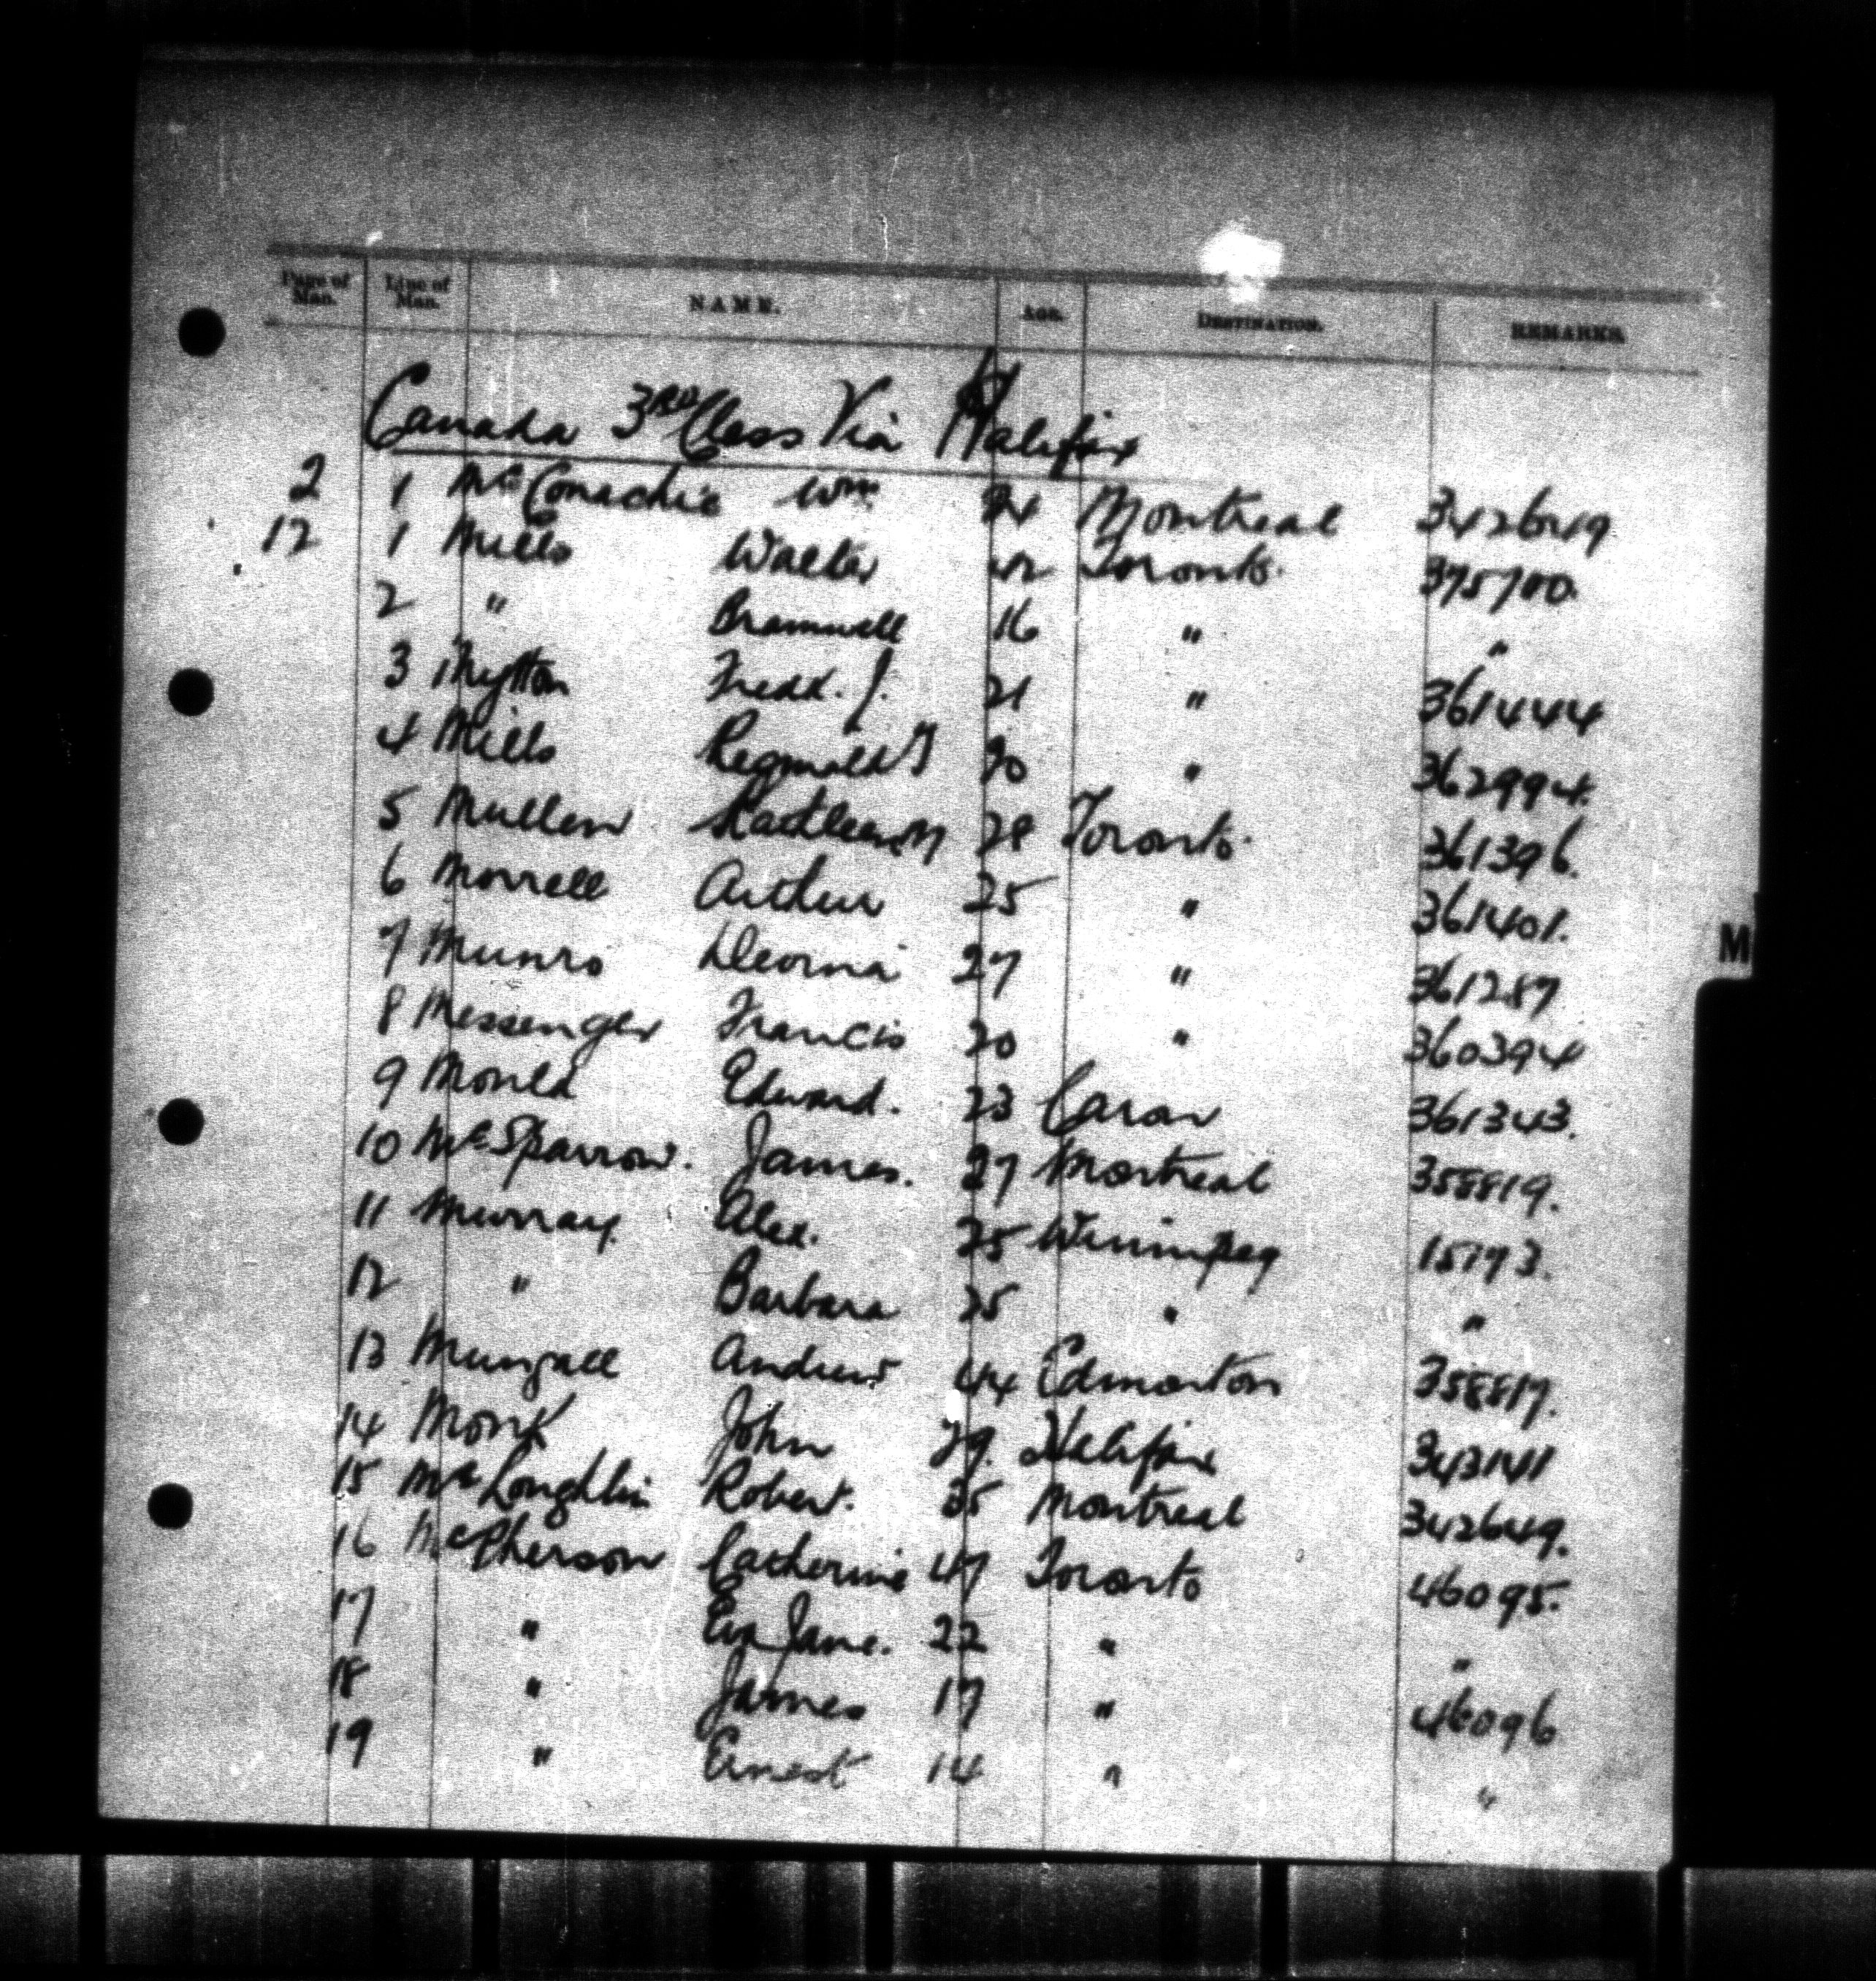 Page of Man. Line of Man. NAME. Age. DESTINATION. REMARKS.
Canada 3RD Class Via Halifax
2 1 McConachie Wm. 24 Montreal 342649
12 1 Mills Walter 42 Toronto. 375700.
2 " Bramwell 16 " "
3 Mytton Fredk. J. 21 " 361444
4 Mills Reginald T 20 " 362994.
5 Mullen Kathleen M 28 Toronto. 361396.
6 Morrell Arthur 25 " 361401.
7 Munro 27 " 361287
8 Messenger Francis 20 " 360394
9 Mould Edward. 23 Caron 361343.
10 McSparron. James. 27 Montreal 358819.
11 Murray. Alex. 25 Winnipeg 15173.
12 " Barbara 25 " "
13 Mungall Andrew 44 Edmonton 358817.
14 Monk John 29. Halifax 342141
15 McLoughlin Robert. 35 Montreal 342649.
16 McPherson Catherine 47 Toronto 46095.
17 " Eva Jane. 22 " "
18 " James 17 " 46096
19 " Ernest 14 " "
M